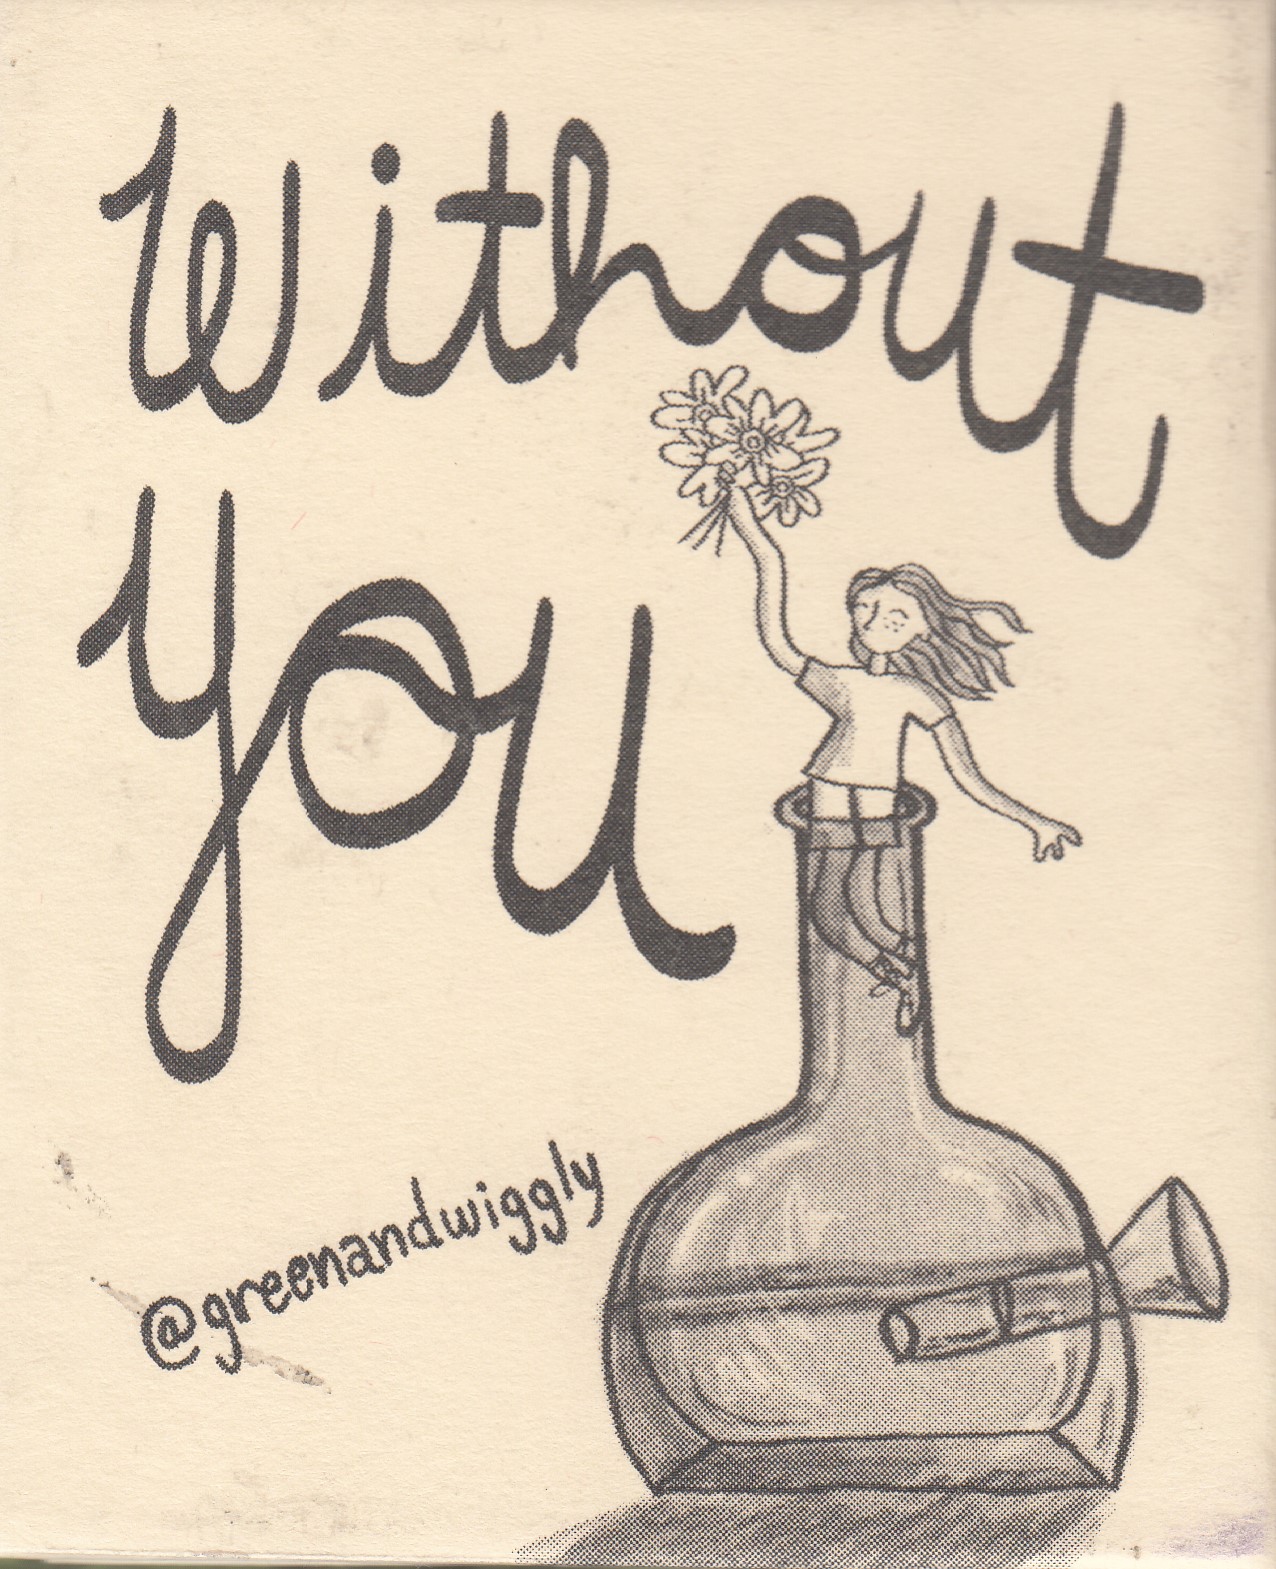 Without
You
@greenandwiggly